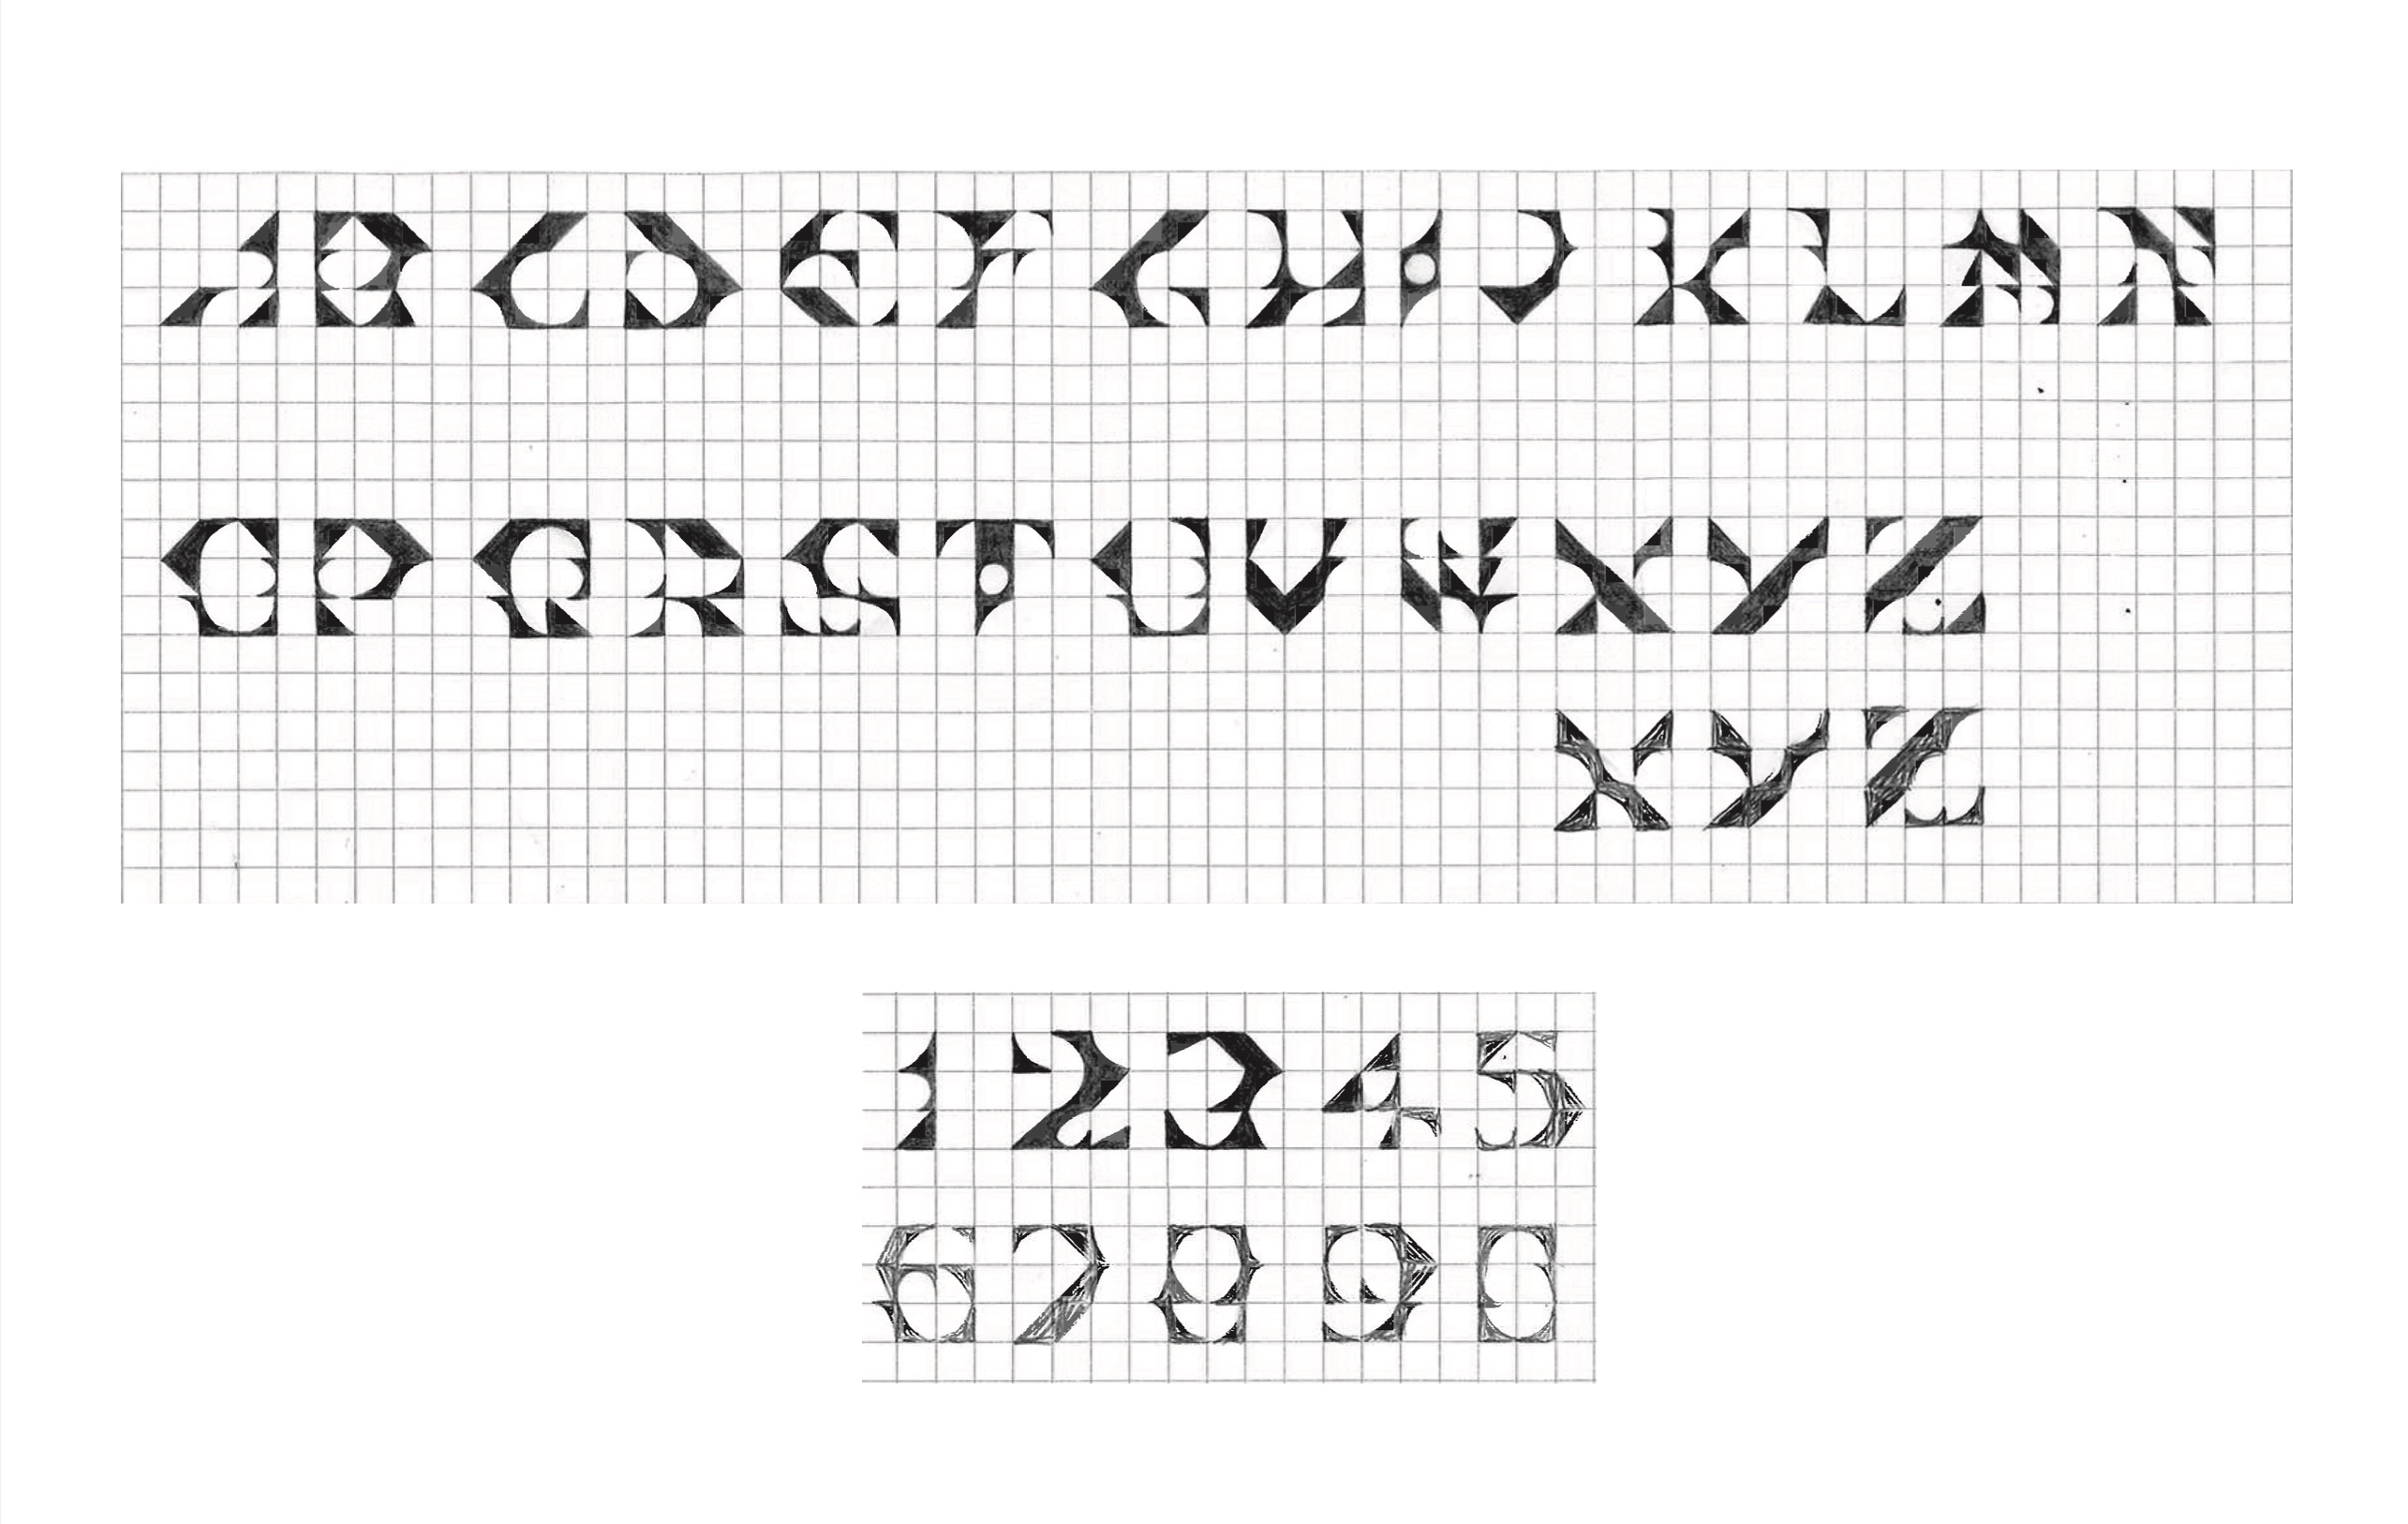 A B C D E F G H I J K L M N
O P Q R S T U V W X Y Z
X Y Z
1 2 3 4 5
6 7 8 9 0